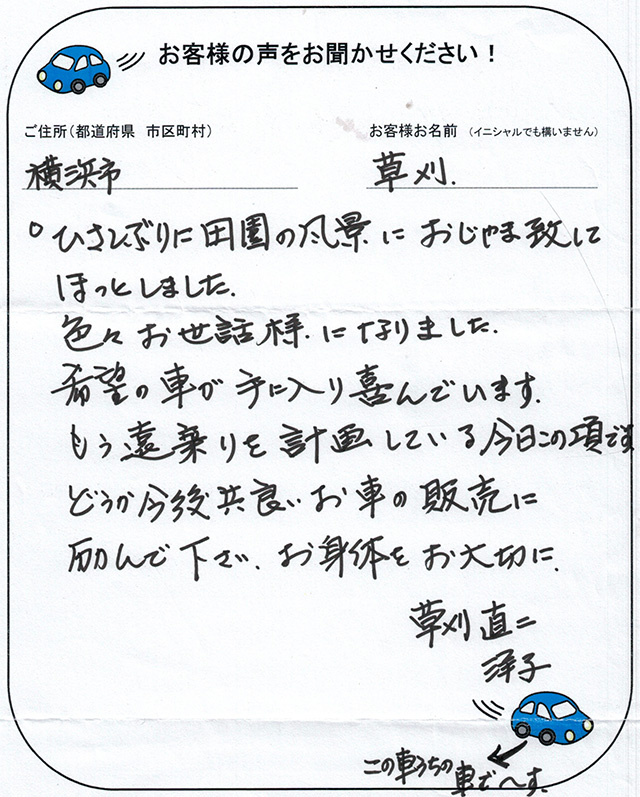 お客様の声をお聞かせください！
ご住所（都道府県　市区町村）
お客様お名前　（イニシャルでも構いません）
横浜市
草刈.
○ひさしぶりに田園の風景におじゃま致して
ほっとしました.
色々お世話様になりました.
希望の車が手に入り喜んでいます.
もう遠乗りを計画している今日この項です
どうか今後共良いお車の販売に
励んで下さい. お身体をお大切に.
草刈直二
洋子
この車うちの
車で〜す.